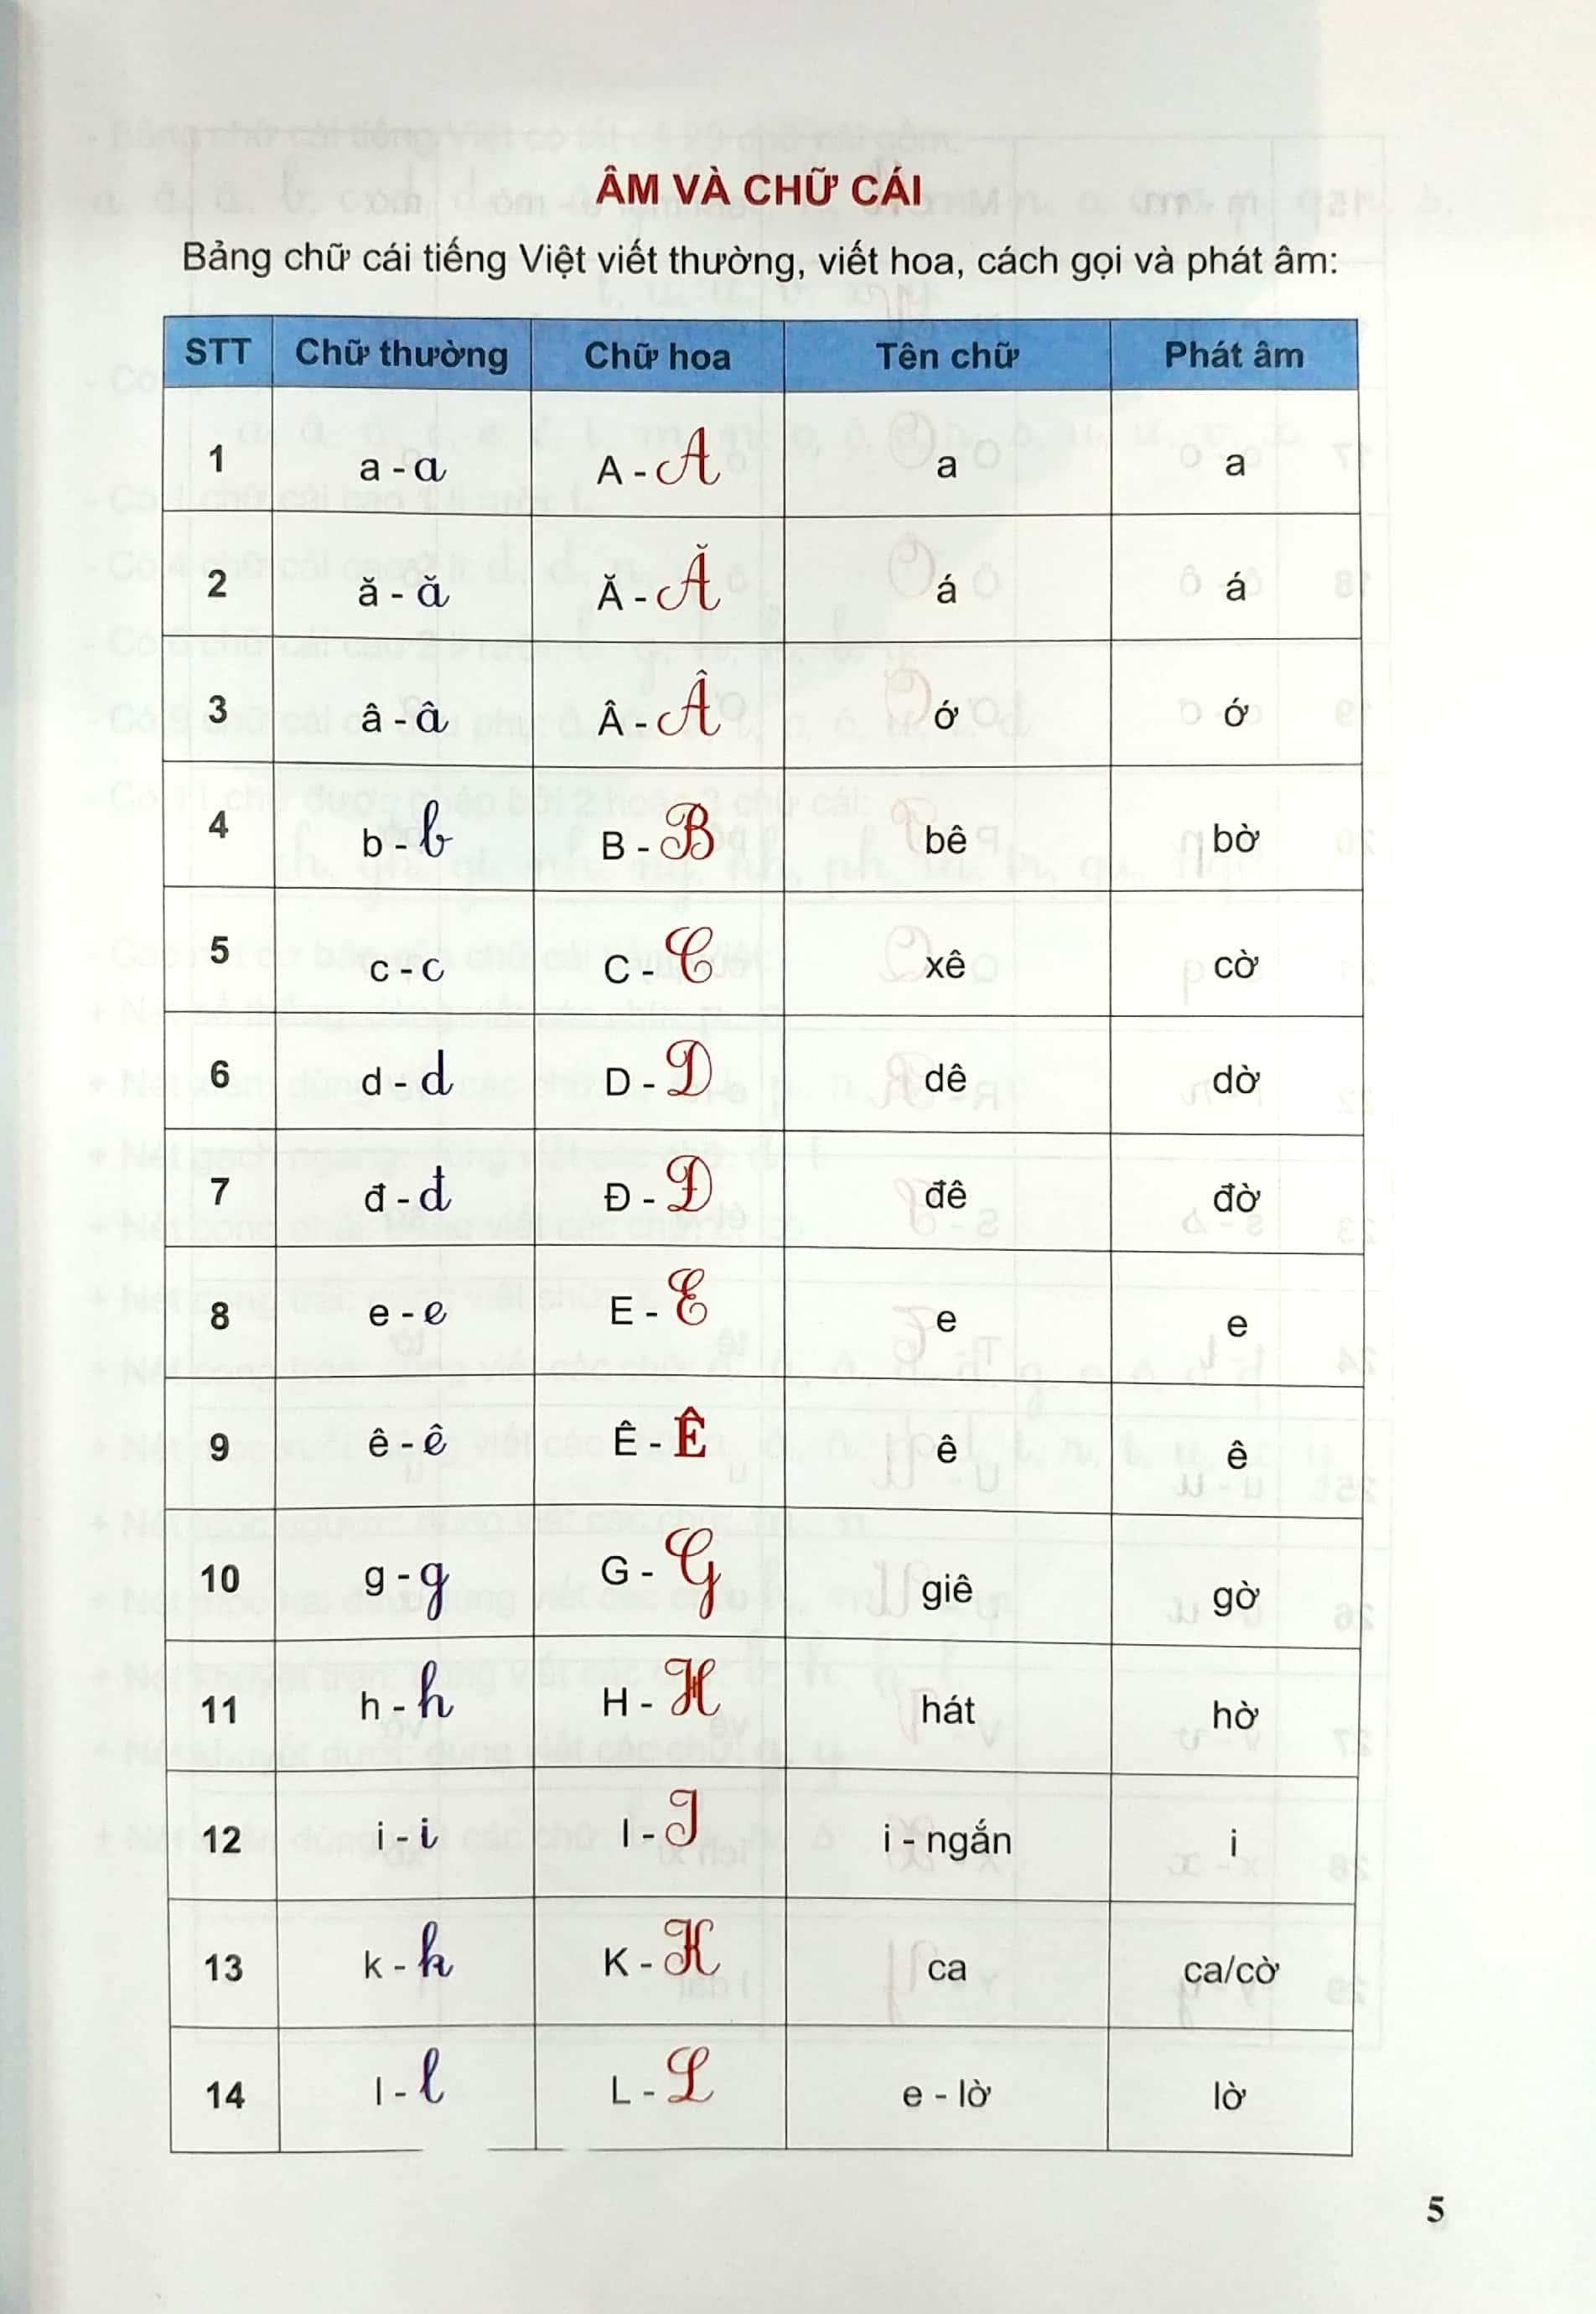 ÂM VÀ CHỮ CÁI
Bảng chữ cái tiếng Việt viết thường, viết hoa, cách gọi và phát âm:
STT Chữ thường Chữ hoa Tên chữ Phát âm
1 a - a A - A a a
2 ă - ă Ă - Ă á á
3 â - â Â - Â ớ ớ
4 b - b B - B bê bờ
5 c - c C - C xê cờ
6 d - d D - D dê dờ
7 đ - đ Đ - Đ đê đờ
8 e - e E - E e e
9 ê - ê Ê - Ê ê ê
10 g - g G - G giê gờ
11 h - h H - H hát hờ
12 i - i I - I i - ngắn i
13 k - k K - K ca ca/cờ
14 l - l L - L e - lờ lờ
5